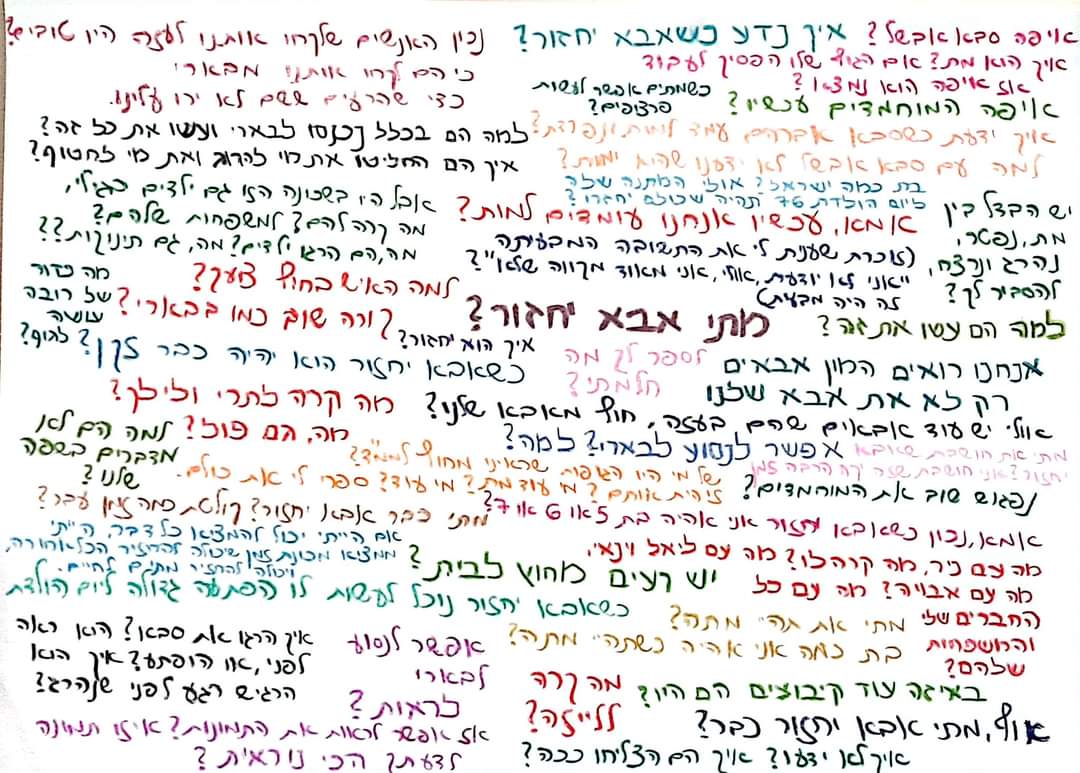 איפה סבא אבשל? איך נדע כשאבא יחזור? נכון האנשים שלקחו אותנו לעזה היו טובים?
איך הוא מת? אם הגוף שלו הפסיק לעבוד
אז איפה הוא נמצא?
כי הם לקחו אותנו מבארי
כדי שהרעים ששם לא ירו עלינו.
כשמתים אפשר לעשות
פרצופים?
איפה המוחמדים עכשיו?
איך ידעת כשסבא אברהם עמד למות ונפרדת?
למה עם סבא אבשל לא ידענו שהוא ימות?
למה הם בכלל נכנסו לבארי ועשו את כל זה?
איך הם החליטו את מי להרוג ואת מי לחטוף?
בת כמה ישראל? אולי המתנה שלה
ליום הולדת 76 תהיה שכולם יחזרו?
אבל היו בשכונה הזו גם ילדים כגילי,
מה קרה להם? למשפחות שלהם?
מה, הם הרגו ילדים? מה, גם תינוקות??
אמא, עכשיו אנחנו עומדים למות?
יש הבדל בין
מת, נפטר,
נהרג ונרצח,
להסביר לך?
(זוכרת שענית לי את התשובה המבעיתה
"אני לא יודעת, אולי, אני מאוד מקווה שלא"?
זה היה מבעית)
למה האיש בחוץ צועק?
מה כדור
של רובה
עושה
לגוף?
קורה שוב כמו בבארי?
מתי אבא יחזור?
למה הם עשו את זה?
איך הוא יחזור?
כשאבא יחזור הוא יהיה כבר זקן?
לספר לך מה
חלמתי?
אנחנו רואים המון אבאים
רק לא את אבא שלנו
מה קרה לתרי ולילך?
אולי יש עוד אבאים שהם בעזה, חוץ מאבא שלנו?
מה, הם פול?
למה הם לא
מדברים בשפה
שלנו?
אפשר לנסוע לבארי? למה?
מתי את חושבת שאבא
יחזור? אני חושבת שזה יקח הרבה זמן
של מי היו הגופות שראינו מחוץ לממ"ד?
זיהית אותם? מי עוד מת? מי עוד? ספרי לי את כולם.
נפגוש שוב את המוחמדים?
מתי כבר אבא יחזור? קולטת כמה זמן עבר?
אמא, נכון כשאבא יחזור אני אהיה בת 5 או 6 או 7?
אם הייתי יכול להמציא כל דבר, הייתי
ממציא מכונת זמן שיכולה להחזיר הכל אחורה,
ויכולה להחזיר מתים לחיים.
יש רעים מחוץ לבית?
מה עם ניר, מה קרה לו? מה עם ליאל וינאי,
מה עם אבויה? מה עם כל
החברים שלי
והמשפחות
שלהם?
כשאבא יחזור נוכל לעשות לו הפתעה גדולה ליום הולדת
מתי את תהיי מתה?
בת כמה אני אהיה כשתהיי מתה?
איך הרגו את סבא? הוא ראה
לפני, או הופתע? איך הוא
הרגיש רגע לפני שנהרג?
אפשר לנסוע
לבארי
לראות?
מה קרה
לליזה?
באיזה עוד קיבוצים הם היו?
אז אפשר לראות את התמונות? איזו תמונה
לדעתך הכי נוראית?
אוף, מתי אבא יחזור כבר?
איך לא ידעו? איך הם הצליחו ככה?